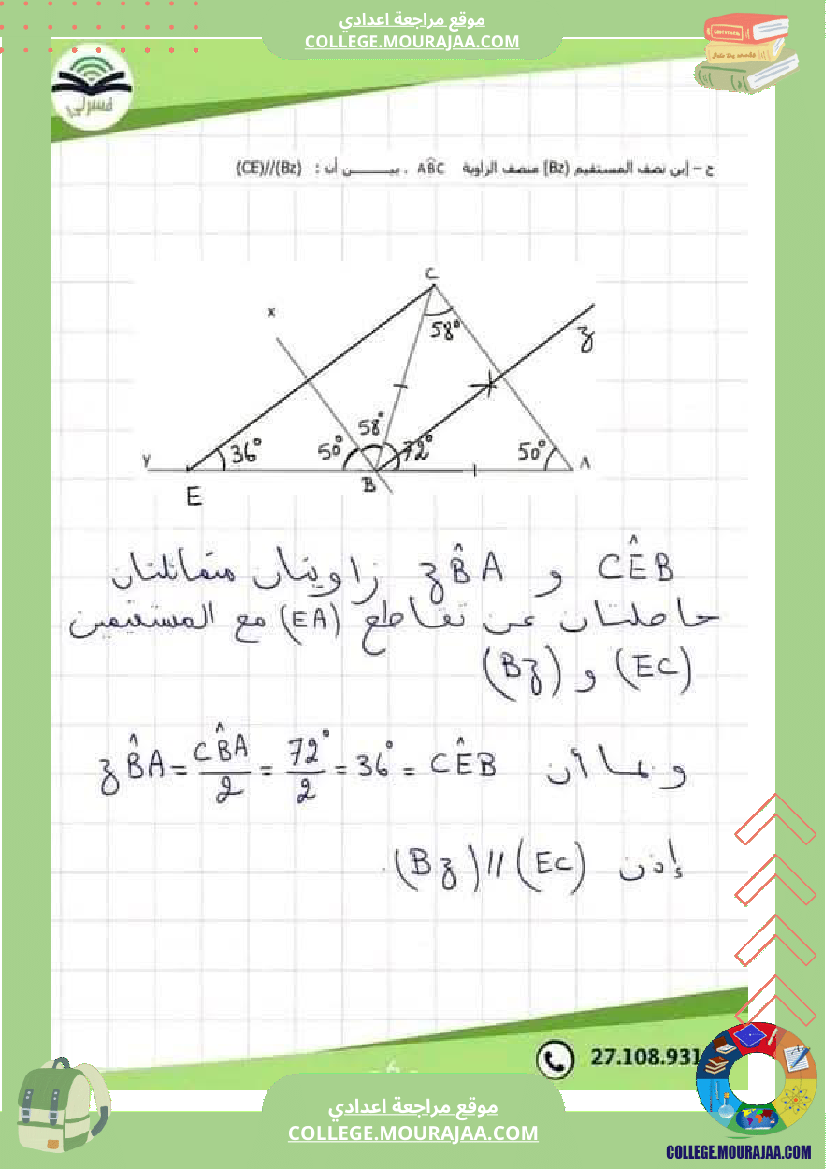 موقع مراجعة اعدادي
COLLEGE.MOURAJAA.COM
فسرلي
ح – إبن نصف المستقيم [Bz) منصف الزاوية AB̂C . بيـــــن أن : (CE)//(Bz)
C
x
58°
z
58°
y
36°
50°
72°
50°
A
B
E
CÊB و zB̂A زاويتان متماثلتان
حاصلتان عن تقاطع (EA) مع المستقيمين
(EC) و (Bz)
و بما أن zB̂A = CB̂A/2 = 72°/2 = 36° = CÊB
إذن (Bz)//(EC).
27.108.931
- 6 -
موقع مراجعة اعدادي
COLLEGE.MOURAJAA.COM
COLLEGE.MOURAJAA.COM